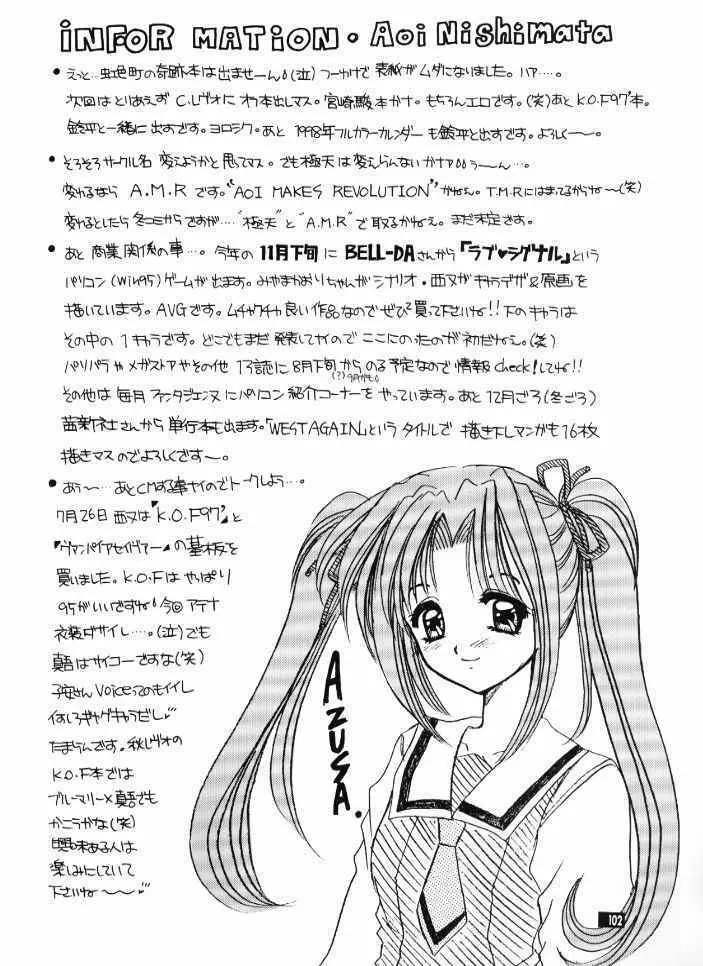 INFORMATION・Aoi Nishimata
・えっと…虹色町の奇跡本は出ませーん!(泣)つーかけで表紙がムダになりました。ハァ…。
次回はとりあえずC.レヴォにオリ本出しマス。宮崎駿本かナ。もちろんエロです。(笑)あとK.O.F97'本。
鈴平と一緒に出すです。ヨロシク。あと1998年フルカラーカレンダーも鈴平と出すです。よろしく〜。
・そろそろサークル名変えようかと思ってマス。でも極天は変えらんないかナァ。うーん…。
変わるならA.M.Rです。"AOI MAKES REVOLUTION"かねぇ。T.M.Rにはまってるからね〜(笑)
変わるとしたら冬コミからですが…."極天"と"A.M.R"で取るかねぇ。まだ未定です。
・あと商業関係の事…。今年の11月下旬にBELL-DAさんから「ラブ♥シグナル」という
パソコン(Win95)ゲームが出ます。みやまかおりちゃんがシナリオ・西又がキャラデザ&原画を
描いています。AVGです。ムチャクチャ良い作品なのでぜひ買って下さいね!!下のキャラは
その中の1キャラです。どこでもまだ発表してナイのでここにのったのが初だねぇ。(笑)
パソパラやメガストアやその他13誌に8月下旬からのる予定なので情報check!してね!!
(?)9月かも。
その他は毎月ファンタジェンヌにパソコン紹介コーナーをやっています。あと12月ごろ(冬ごろ)
茜新社さんから単行本も出ます。「WEST AGAIN」というタイトルで描き下しマンガも16枚
描きマスのでよろしくです〜。
・あぅ〜…あとCMする事ナイのでトークしよう…。
7月26日西又は「K.O.F97'」と
「ヴァンパイアセイヴァー」の基板を
買いました。K.O.Fはやっぱり
95がいいですね!今回アテナ
衣装ダサイし….(泣)でも
真吾はサイコーですな(笑)
子安さんVoiceってのもイイし
何しろギャグキャラだし
たまらんです。秋レヴォの
K.O.F本では
ブルーマリー×真吾でも
かこうかな(笑)
興味ある人は
楽しみにしていて
下さいね〜〜
AZUSA.
102